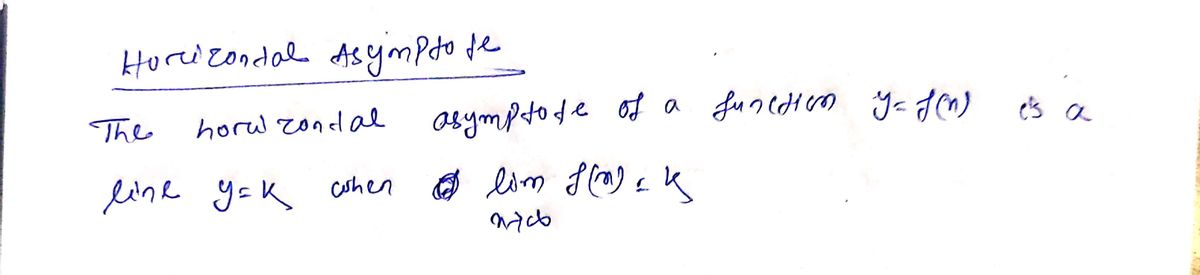 Horizontal Asymptote
The horizontal asymptote of a function y = f(x) is a
line y = k when lim f(x) = k
x→∞